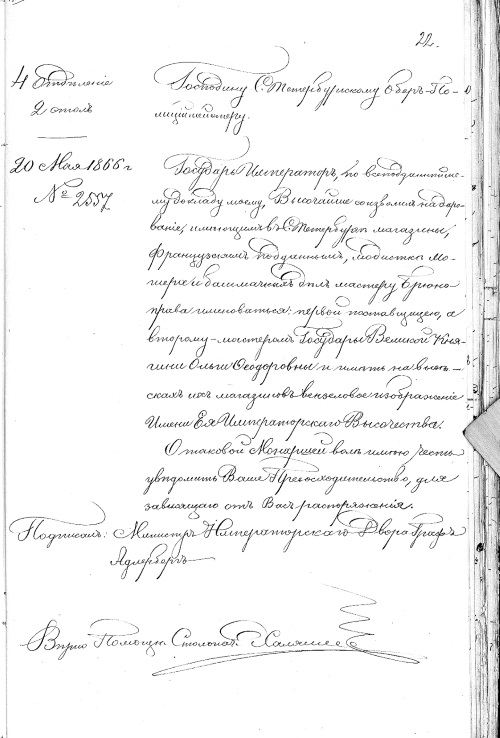 22.
4 Отдѣленіе
2 столъ
Господину С. Петербургскому Оберъ-По-
лицiймейстеру.
20 Мая 1866 г
№ 2557
Государь Императоръ, по всеподданнѣйше-
му докладу моему, Высочайше соизволилъ на даро-
ваніе, имеющимъ въ С. Петербургѣ магазины,
Французскимъ подданнымъ, модисткѣ Мо-
шера и башмачныхъ дѣлъ мастеру Брюно
права именоваться: первой поставщицею, а
второму - мастеромъ Государыни Великой Кня-
гини Ольги Ѳеодоровны и имѣть на вывѣ-
скахъ ихъ магазиновъ вензеловое изображеніе
Имени Ея Императорскаго Высочества.
О таковой Монаршей волѣ имѣю честь
увѣдомить Ваше Превосходительство, для
зависящаго отъ Васъ распоряженія.
Подписалъ: Министръ Императорскаго Двора Графъ
Адлербергъ
Вѣрно Помощн. Столонач.